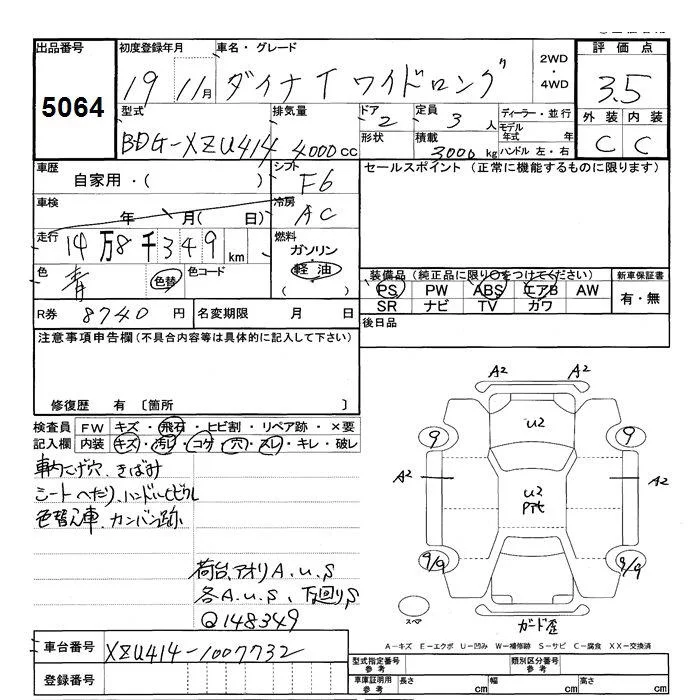 出品番号 初度登録年月 車名・グレード 2WD・4WD 評価点
5064 19 11月 ダイナT ワイドロング 3.5
型式 排気量 ドア 定員 ディーラー・並行 外装 内装
BDG-XZU414 4000cc 2 3人 モデル年式 年 C C
形状 積載 3000kg ハンドル 左・右
車歴 シフト セールスポイント (正常に機能するものに限ります)
自家用・( ) F6
車検 冷房
年 月( 日) AC
走行 燃料
14万8千349km ガソリン
色 色替 色コード 軽油 装備品 (純正品に限り○をつけてください) 新車保証書
青 ( ) PS PW ABS エアB AW 有・無
SR ナビ TV カワ
R券 8740円 名変期限 月 日 後日品
注意事項申告欄 (不具合内容等は具体的に記入して下さい)
修復歴 有 〔箇所 〕
検査員 FW キズ・飛石・ヒビ割・リペア跡・×要
記入欄 内装 キズ・汚レ・コゲ・穴・スレ・キレ・破レ
車内コゲ穴、きばみ
シートへたり、ハンドルヒビワレ
色替え車、カンバン跡
荷台、アオリA.U.S
各A.U.S、下回りS
Q148349
A2 A2
U2
9 9
A2 U2 A2
Pキt
9/9 9/9
スペア ガード歪
A−キズ E−エクボ U−凹み W−補修跡 S−サビ C−腐食 XX−交換済
車台番号 XZU414-1007732
登録番号
型式指定番号 参考 類別区分番号 参考
車庫証明用 参考 長さ cm 幅 cm 高さ cm